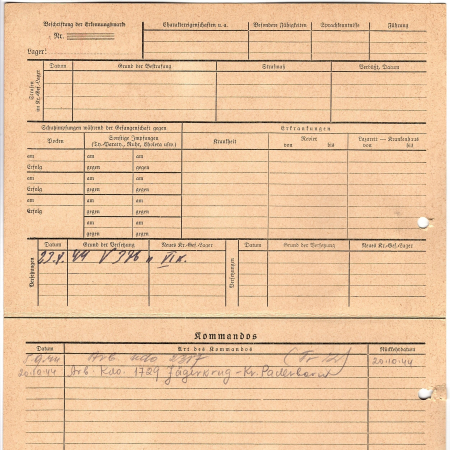 Beschriftung der Erkennungsmarke
Nr.
Lager:
Charaktereigenschaften u. a.
Besondere Fähigkeiten
Sprachkenntnisse
Führung
Strafen im Kr.-Gef.-Lager
Datum
Grund der Bestrafung
Strafmaß
Verbüßt, Datum
Schutzimpfungen während der Gefangenschaft gegen
Erkrankungen
Pocken
Sonstige Impfungen
(Ty.-Paraty., Ruhr, Cholera usw.)
Krankheit
Revier
von bis
Lazarett — Krankenhaus
von bis
am am am
Erfolg gegen gegen
am am am
Erfolg gegen gegen
am am am
Erfolg gegen gegen
am am
gegen gegen
Versetzungen
Datum
Grund der Versetzung
Neues Kr.-Gef.-Lager
Versetzungen
Datum
Grund der Versetzung
Neues Kr.-Gef.-Lager
44 V 346 VI K.
Kommandos
Datum
Art des Kommandos
Rückkehrdatum
9.44 Arb. 20.10.44
20.10.44 Arb. Kdo. 1729 Jägerkrug - Kr. Paderborn